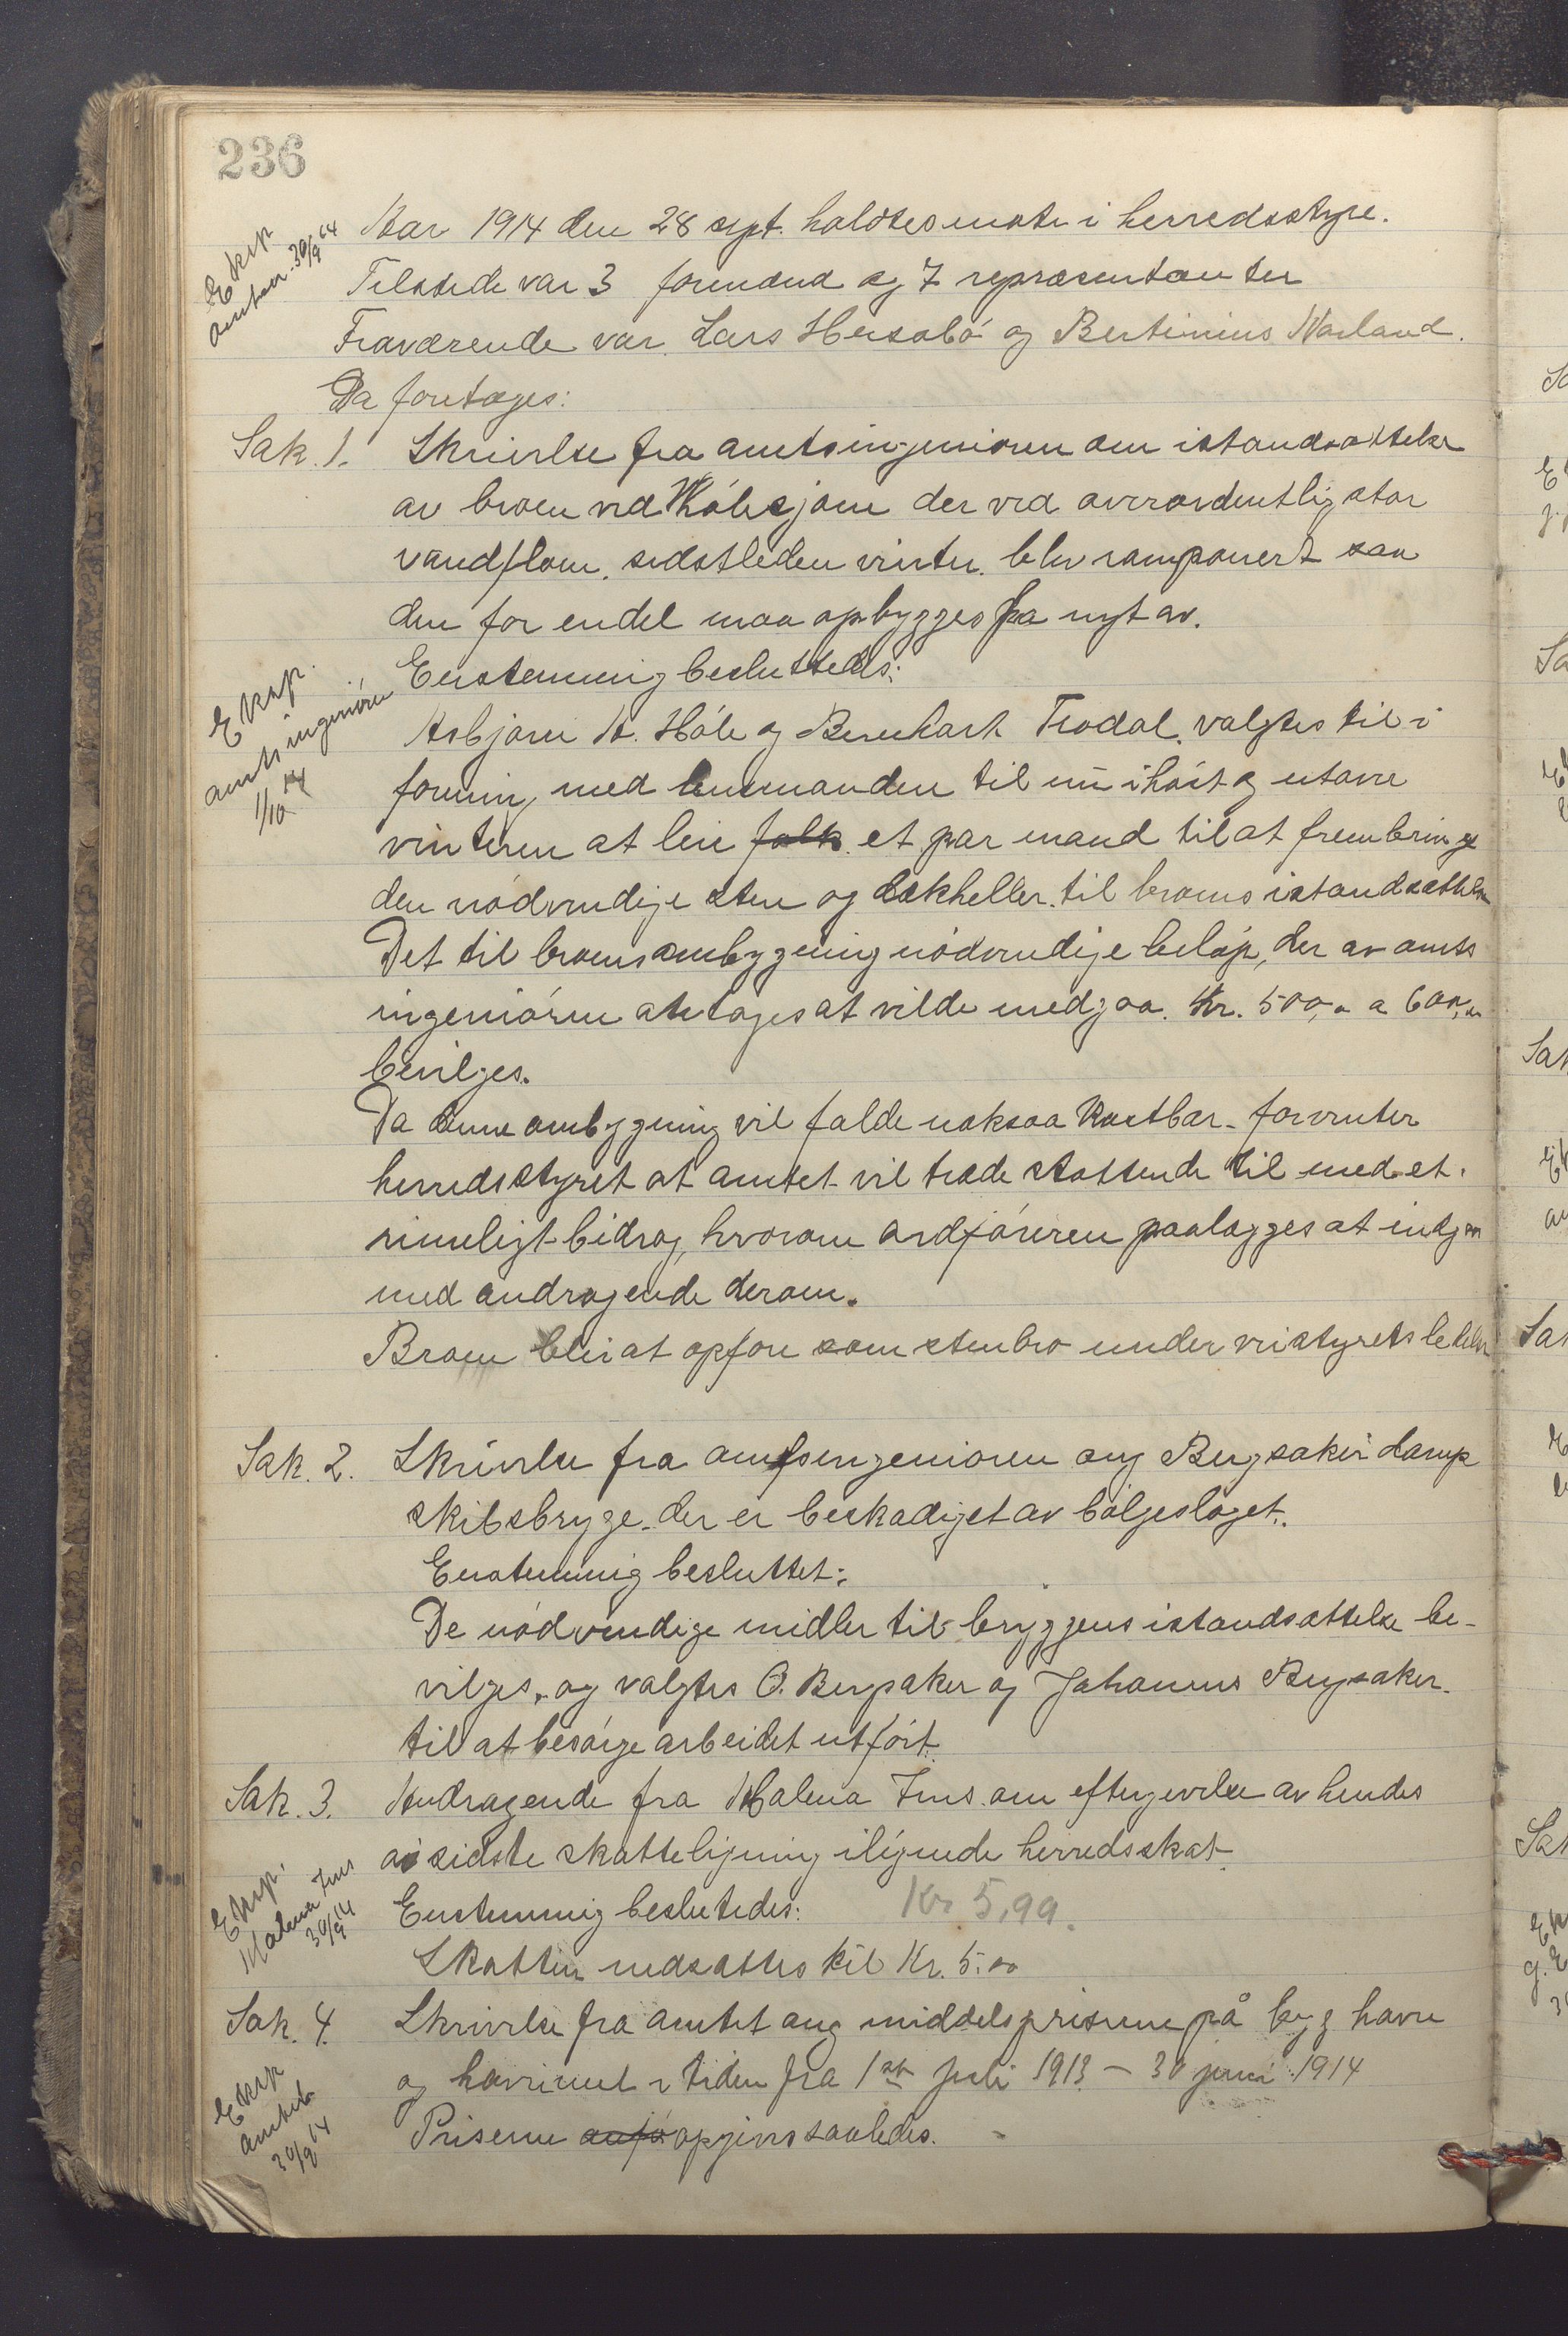 236
Eksp
amtm. 30/9 14
Aar 1914 den 28 sept. holdtes møte i herredsstyre.
Tilstede var 3 formænd og 7 repræsentanter
Fraværende var Lars Hersabö og Bertinius Narland.
Da foretages:
Sak. 1. Skrivelse fra amtsingeniøren om istandsættelse
av broen ved Hålesjøen der ved overordentlig stor
vandflom. sidstleden vinter. blev ramponert saa
den for endel maa opbygges fra nyt av.
Eksp.
amtsingeniören
1/10 14
Enstemmig besluttedes:
Asbjørn A. Håle og Bernhart Trodal. valgtes til i
forening med lensmanden til nu ihöst og utover
vinteren at leie folk. et par mand til at frembringe
den nödvendige sten og dækheller. til broens istandsættelse
Det til broens ombygning nödvendige belöp, der av amts
ingeniören antages at vilde medgaa. Kr. 500,- a 600,-
bevilges.
Da denne ombygning vil falde noksaa kostbar - forventer
herredsstyret at amtet vil træde støttende til med et
rimeligt bidrag, hvorom ordföreren paalægges at indgaa
med andragende derom.
Broen blir at opføre som stenbro under veistyrets ledelse
Sak. 2. Skrivelse fra amtsengeniøren ang Bergsaker damp
skibsbryge. der er beskadiget av bölgeslaget.
Enstemmig besluttet:
De nödvendige midler til bryggens istandsættelse be-
vilges, og valgtes O. Bergsaker og Johannes Bergsaker.
til at besörge arbeidet utfört.
Sak. 3. Andragende fra Malena Fus om eftergivelse av hendes
av sidste skatteligning ilignede herredsskat.
Eksp.
Malena Fus
30/9 14
Enstemmig beslutedes: Kr 5,99.
Skatten nedsættes til Kr. 5.00
Sak. 4. Skrivelse fra amtet ang middelsprisene på byg havre
og havremel i tiden fra 1ste juli 1913 - 30 juni 1914
Eksp
amtet
30/9 14
Priserne opgives saaledes.